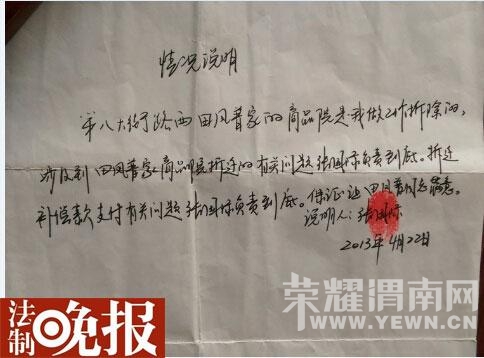 情况说明
第八大街路西田风普家的商品院是我做工作拆除的,
涉及到田风普家商品院拆迁的有关问题张国际负责到底。拆迁
补偿款支付有关问题张国际负责到底。保证让田风普满意。
说明人:张国际
2013年4月22日
荣耀渭南网
WWW.YEWN.CN
法制晚报